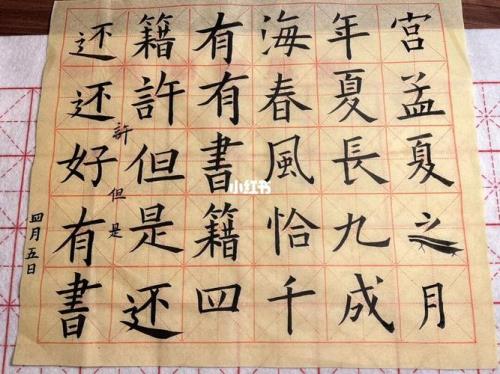 宮孟夏之月
年夏長九成
海春風恰千
有有書籍四
籍許但是还
許但是
还还好有書
四月五日
小红书